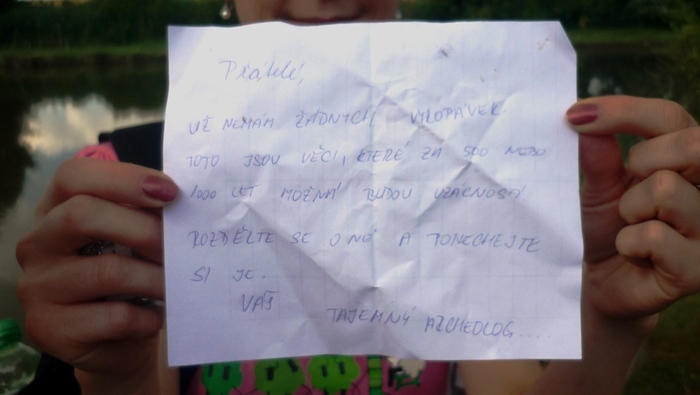 Přátelé,
UŽ NEMÁM ŽÁDNÝCH VYKOPÁVEK.
TOTO JSOU VĚCI, KTERÉ ZA 500 NEBO
1000 LET MOŽNÁ BUDOU VZÁCNOSTÍ
ROZDĚLTE SE O NĚ A PONECHEJTE
SI JE.
VÁŠ
TAJEMNÝ ARCHEOLOG....